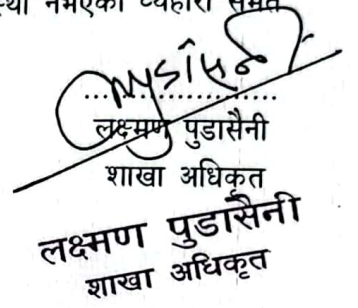 नभएको व्यहोरा समेत
लक्ष्मण पुडासैनी
शाखा अधिकृत
लक्ष्मण पुडासैनी
शाखा अधिकृत